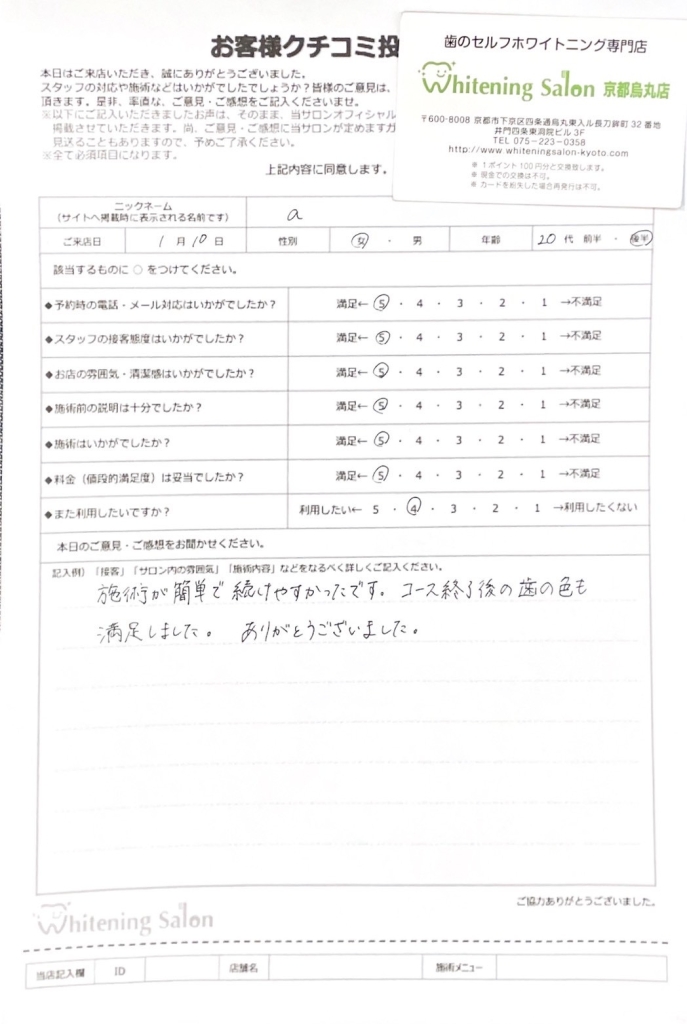 お客様クチコミ投
歯のセルフホワイトニング専門店
Whitening Salon 京都烏丸店
〒600-8008 京都市下京区四条通烏丸東入ル長刀鉾町 32 番地
井門四条東洞院ビル 3F
TEL 075-223-0358
http://www.whiteningsalon-kyoto.com
※ 1ポイント100円分と交換致します。
※ 現金での交換は不可。
※ カードを紛失した場合再発行は不可。
本日はご来店いただき、誠にありがとうございました。
スタッフの対応や施術などはいかがでしたでしょうか？皆様のご意見は、
頂きます。是非、率直な、ご意見・ご感想をご記入くださいませ。
※以下にご記入いただきましたお声は、そのまま、当サロンオフィシャル
掲載させていただきます。尚、ご意見・ご感想に当サロンが定めますガ
見送ることもありますので、予めご了承ください。
※全て必須項目になります。
上記内容に同意します。
ニックネーム
（サイトへ掲載時に表示される名前です）
a
ご来店日 1 月 10 日 性別 女 ・ 男 年齢 20 代 前半 ・ 後半
該当するものに ○ をつけてください。
◆予約時の電話・メール対応はいかがでしたか？ 満足← 5 ・ 4 ・ 3 ・ 2 ・ 1 →不満足
◆スタッフの接客態度はいかがでしたか？ 満足← 5 ・ 4 ・ 3 ・ 2 ・ 1 →不満足
◆お店の雰囲気・清潔感はいかがでしたか？ 満足← 5 ・ 4 ・ 3 ・ 2 ・ 1 →不満足
◆施術前の説明は十分でしたか？ 満足← 5 ・ 4 ・ 3 ・ 2 ・ 1 →不満足
◆施術はいかがでしたか？ 満足← 5 ・ 4 ・ 3 ・ 2 ・ 1 →不満足
◆料金（値段的満足度）は妥当でしたか？ 満足← 5 ・ 4 ・ 3 ・ 2 ・ 1 →不満足
◆また利用したいですか？ 利用したい← 5 ・ 4 ・ 3 ・ 2 ・ 1 →利用したくない
本日のご意見・ご感想をお聞かせください。
記入例）「接客」「サロン内の雰囲気」「施術内容」などをなるべく詳しくご記入ください。
施術が簡単で続けやすかったです。コース終了後の歯の色も
満足しました。 ありがとうございました。
ご協力ありがとうございました。
Whitening Salon
当店記入欄 ID 店舗名 施術メニュー